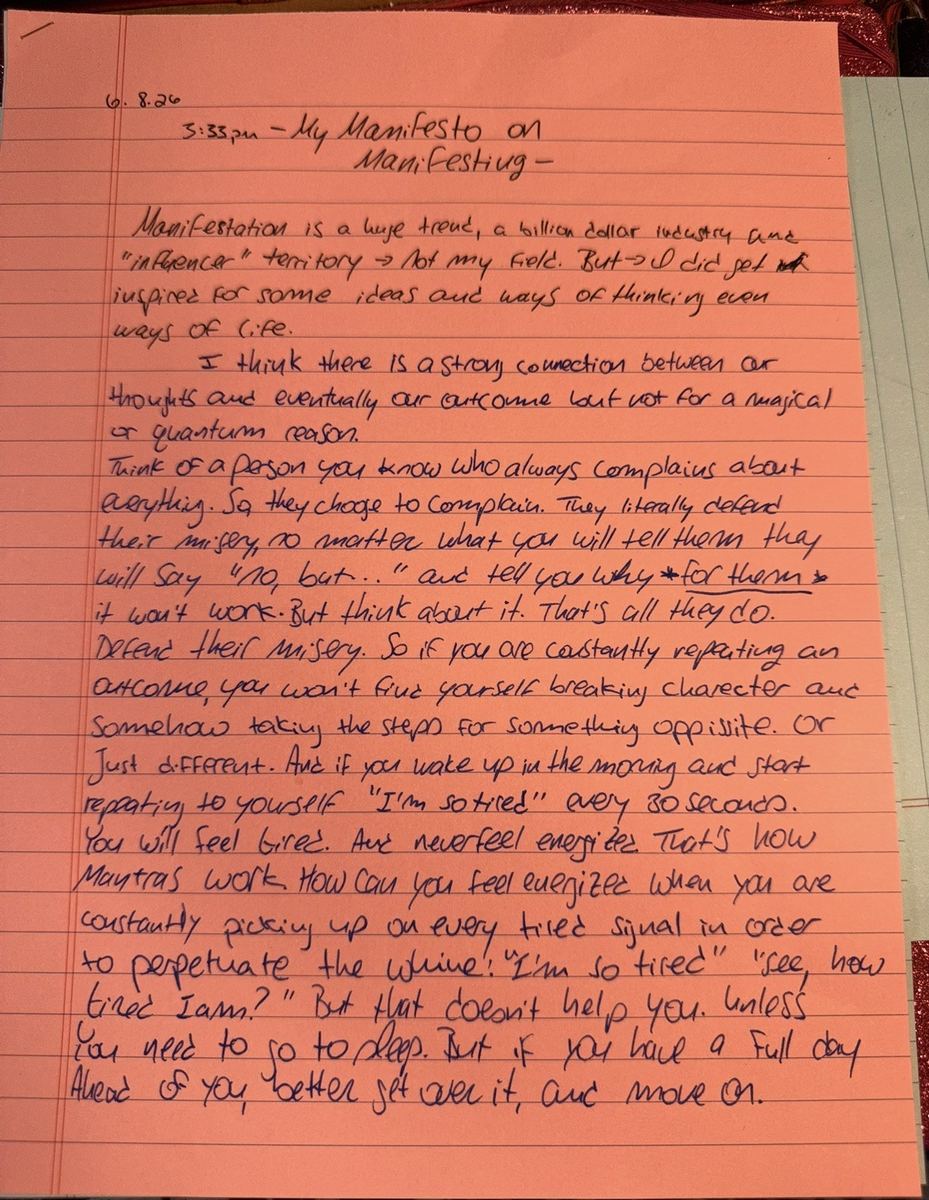 6. 8.26
3:33pm - My Manifesto on
Manifesting -
Manifestation is a huge trend, a billion dollar industry and
"influencer" territory → Not my field. But → I did get
inspired for some ideas and ways of thinking even
ways of life.
I think there is a strong connection between our
thoughts and eventually our outcome but not for a magical
or quantum reason.
Think of a person you know who always complains about
everything. So, they choose to complain. They literally defend
their misery, no matter what you will tell them they
will say "no, but..." and tell you why *for them*
it won't work. But think about it. That's all they do.
Defend their misery. So if you are constantly repeating an
outcome, you won't find yourself breaking charecter and
somehow taking the steps for something oppisite. Or
Just different. And if you wake up in the morning and start
repeating to yourself "I'm so tired" every 30 seconds.
You will feel tired. And never feel energized. That's how
Mantras work. How can you feel energized when you are
constantly picking up on every tired signal in order
to perpetuate the whine: "I'm so tired" "see, how
tired I am?" But that doesn't help you. Unless
You need to go to sleep. But if you have a full day
Ahead of you, better get over it, and move on.